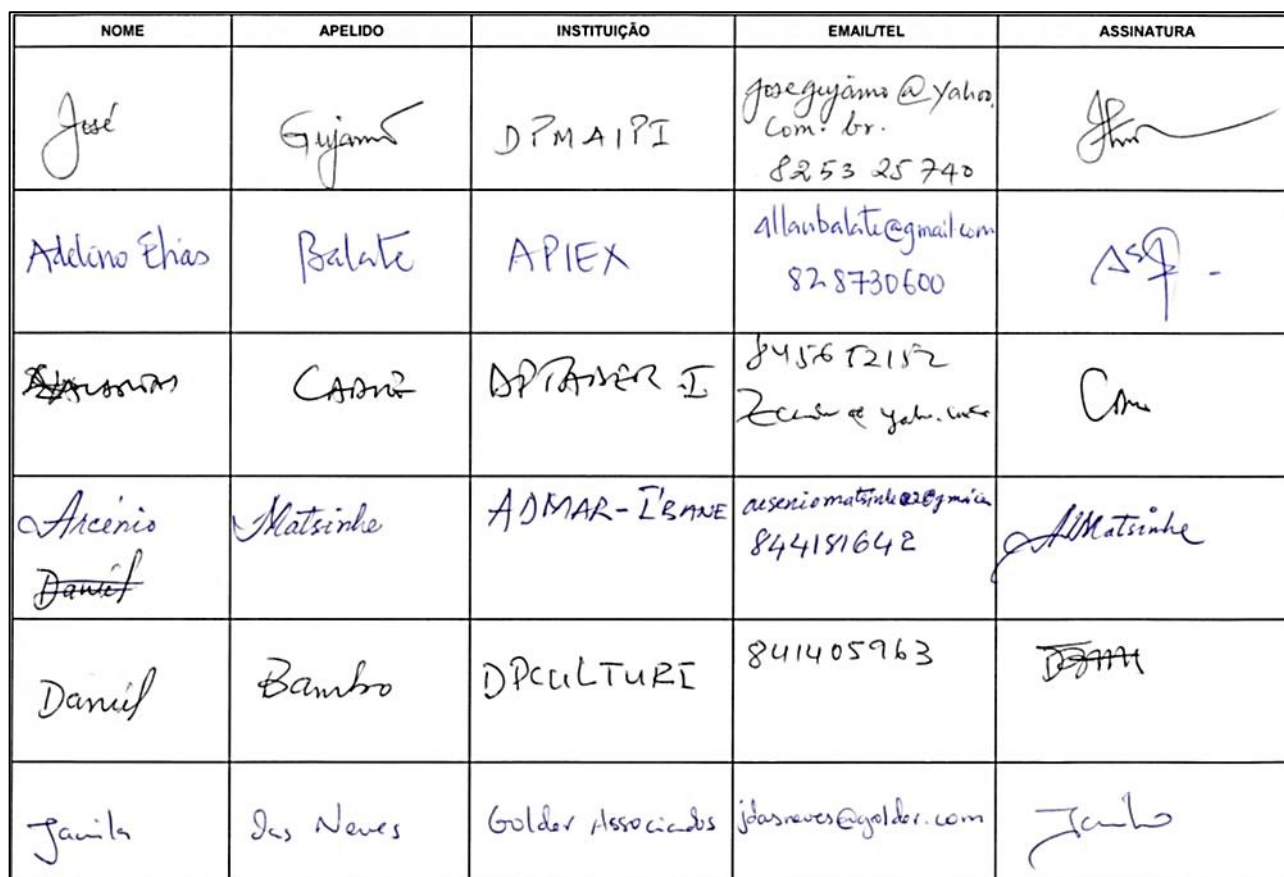 NOME APELIDO INSTITUIÇÃO EMAIL/TEL ASSINATURA
José Gujamo DPMAIPI josegujamo@yahoo.
com.br.
825325740
Adelino Elias Balate APIEX allanbalate@gmail.com
828730600
DPTADER I
Arcénio Matsinhe ADMAR-I'BANE
844181642 AMatsinhe
Daniel
Daniel Bambo DPCULTURI 841405963
Jamila Das Neves Golder Associados jdasneves@golder.com